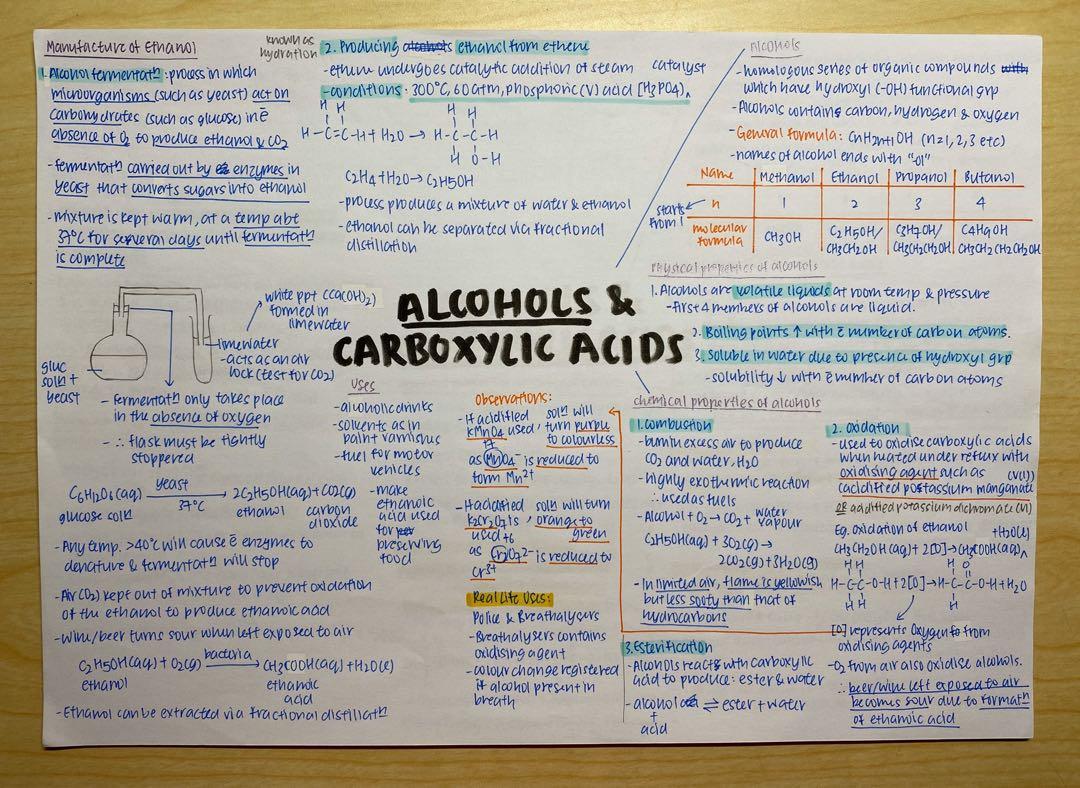 Manufacture of Ethanol
1. Alcohol fermentatⁿ : process in which
microorganisms (such as yeast) act on
carbohydrates (such as glucose) in ē
absence of O₂ to produce ethanol & CO₂
- fermentatⁿ carried out by ē enzymes in
yeast that converts sugars into ethanol
- mixture is kept warm, at a temp abt
37°C for several days until fermentatⁿ
is complete
white ppt (Ca(OH)₂)
formed in
limewater
limewater
- acts as an air
lock (test for CO₂)
gluc
solⁿ +
yeast
- fermentatⁿ only takes place
in the absence of oxygen
- ∴ flask must be tightly
stoppered
C₆H₁₂O₆(aq) yeast 37°C → 2C₂H₅OH(aq) + CO₂(g)
glucose solⁿ ethanol carbon
dioxide
- Any temp. >40°C will cause ē enzymes to
denature & fermentatⁿ will stop
- Air (O₂) kept out of mixture to prevent oxidation
of the ethanol to produce ethanoic acid
- Wine/beer turns sour when left exposed to air
C₂H₅OH(aq) + O₂(g) bacteria → CH₃COOH(aq) + H₂O(l)
ethanol ethanoic
acid
- Ethanol can be extracted via fractional distillatⁿ
known as
hydration
2. Producing ethanol from ethene
- ethene undergoes catalytic addition of steam catalyst
- conditions : 300°C, 60 atm, phosphoric (V) acid [H₃PO₄]
H H H H
H-C=C-H + H₂O → H-C-C-H
H O-H
C₂H₄ + H₂O → C₂H₅OH
- process produces a mixture of water & ethanol
- ethanol can be separated via fractional
distillation
ALCOHOLS &
CARBOXYLIC ACIDS
Uses
- alcoholic drinks
- solvents as in
paint varnishes
- fuel for motor
vehicles
- make
ethanoic
acid used
for
preserving
food
Observations:
- If acidified solⁿ will
KMnO₄ used, turn purple
to colourless
as MnO₄⁻ is reduced to
form Mn²⁺
- If acidified solⁿ will turn
K₂Cr₂O₇ is, orange to
used green
as Cr₂O₇²⁻ is reduced to
Cr³⁺
Real Life Uses:
Police & Breathalysers
- Breathalysers contains
oxidising agent
- colour change registered
if alcohol present in
breath
Alcohols
- homologous series of organic compounds
which have hydroxyl (-OH) functional grp
- Alcohols contains carbon, hydrogen & oxygen
- General formula: CnH2n+1OH (n=1,2,3 etc)
- names of alcohol ends with "ol"
Name Methanol Ethanol Propanol Butanol
starts from 1 n 1 2 3 4
molecular formula CH₃OH C₂H₅OH/ CH₃CH₂OH C₃H₇OH/ CH₃CH₂CH₂OH C₄H₉OH CH₃CH₂CH₂CH₂OH
Physical properties of alcohols
1. Alcohols are volatile liquids at room temp & pressure
- first 4 members of alcohols are liquid.
2. Boiling points ↑ with ē number of carbon atoms.
3. Soluble in water due to presence of hydroxyl grp
- solubility ↓ with ē number of carbon atoms
chemical properties of alcohols
1. Combustion
- burn in excess air to produce
CO₂ and water, H₂O
- highly exothermic reaction
∴ used as fuels
- Alcohol + O₂ → CO₂ + water
vapour
C₂H₅OH(aq) + 3O₂(g) →
2CO₂(g) + 3H₂O(g)
- In limited air, flame is yellowish
but less sooty than that of
hydrocarbons
3. Esterification
- Alcohols reacts with carboxylic
acid to produce: ester & water
- alcohol ⇌ ester + water
+
acid
2. Oxidation
- used to oxidise carboxylic acids
when heated under reflux with
oxidising agent such as (VII)
(acidified potassium manganate
OR acidified potassium dichromate (VI)
Eg. Oxidation of ethanol + H₂O(l)
CH₃CH₂OH(aq) + 2[O] → CH₃COOH(aq)
H H H O
H-C-C-O-H + 2[O] → H-C-C-O-H + H₂O
H H H
[O] represents Oxygen from
oxidising agents
- O₂ from air also oxidise alcohols.
∴ beer/wine left exposed to air
becomes sour due to formatⁿ
of ethanoic acid